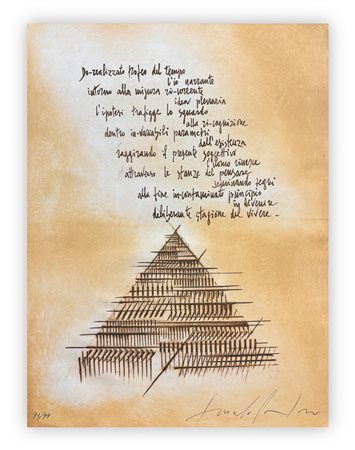 De-realizzato trofeo del tempo
l'io narrante
intorno alla misura ri-corrente
idea plenaria
l'ipotesi trafigge lo sguardo
alla ri-cognizione
dentro in-variabili parametri
dell'esistenza
raggirando il presente soggettivo
l'uomo riverse
attraverso le stanze del pensare
seminando segni
alla fine incontaminato principio
in divenire
deliberante stagione del vivere -
75/99